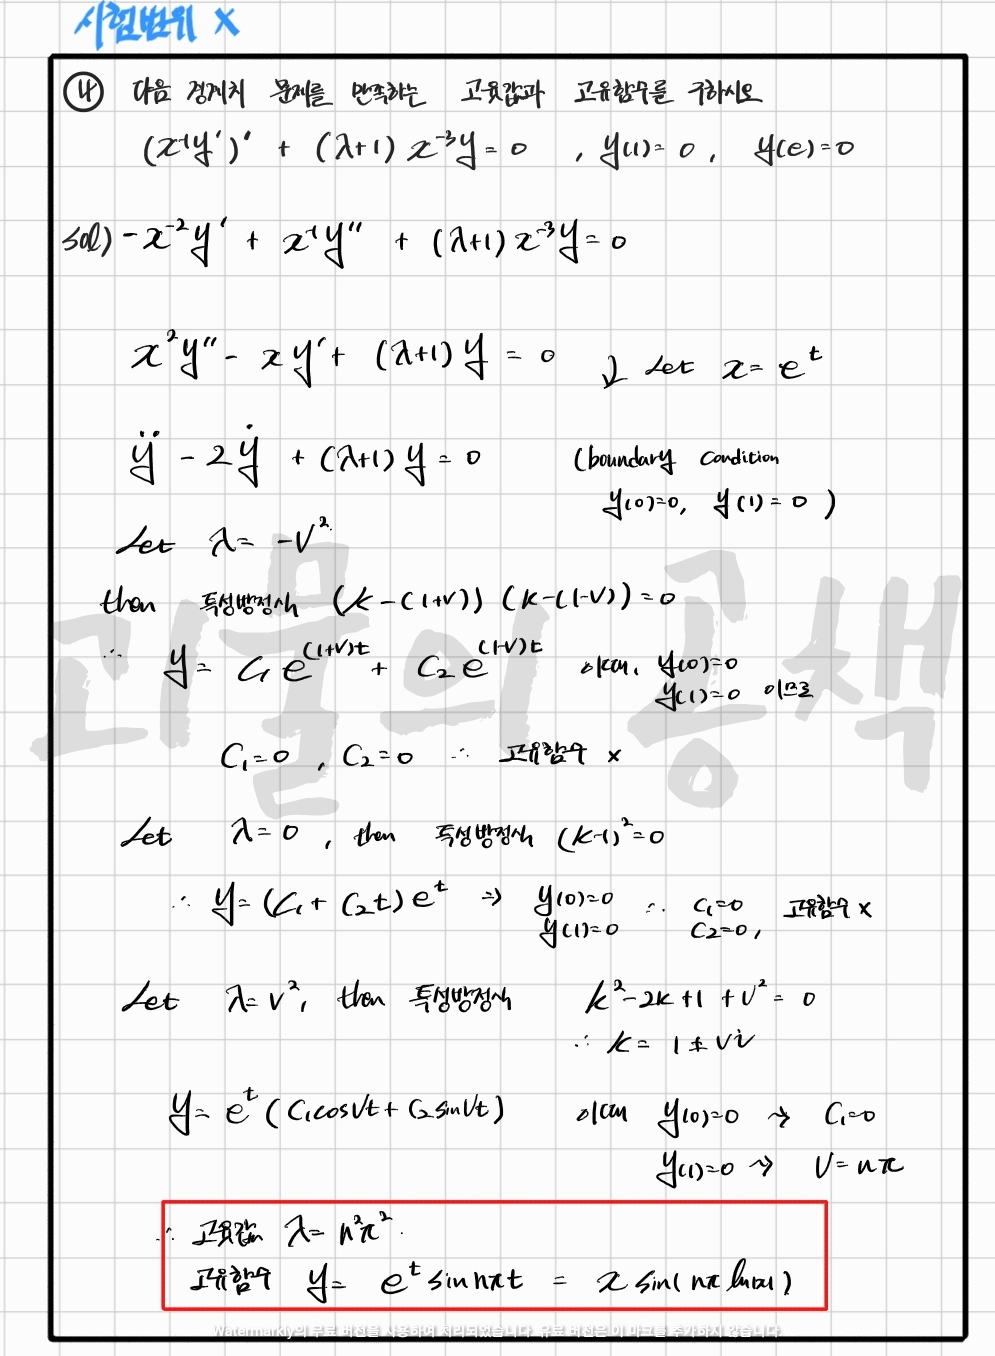 시험범위 X
④ 다음 경계치 문제를 만족하는 고윳값과 고유함수를 구하시오
(x⁻¹y′)′ + (λ+1) x⁻³y = 0 , y(1) = 0 , y(e) = 0
sol) -x⁻²y′ + x⁻¹y″ + (λ+1) x⁻³y = 0
x²y″ - xy′ + (λ+1) y = 0 ↓ Let x = eᵗ
ÿ - 2ẏ + (λ+1) y = 0 (boundary condition
y(0)=0, y(1) = 0 )
Let λ = -V²
then 특성방정식 (k-(1+V)) (k-(1-V)) = 0
∴ y = C₁e^(1+V)t + C₂e^(1-V)t 이때, y(0)=0
y(1)=0 이므로
C₁=0 , C₂=0 ∴ 고유함수 x
Let λ=0 , then 특성방정식 (k-1)²=0
∴ y = (C₁+C₂t)eᵗ ⇒ y(0)=0 ∴ C₁=0 고유함수 x
y(1)=0 C₂=0,
Let λ=V², then 특성방정식 k²-2k+1+V² = 0
∴ k = 1±Vi
y = eᵗ(C₁cosVt + C₂sinVt) 이때 y(0)=0 → C₁=0
y(1)=0 → V=nπ
∴ 고윳값 λ = n²π².
고유함수 y = eᵗ sin nπt = x sin(nπ ln|x|)
괴물의 공책
Watermarkly의 무료 버전을 사용하여 처리되었습니다. 유료 버전은 이 마크를 추가하지 않습니다.